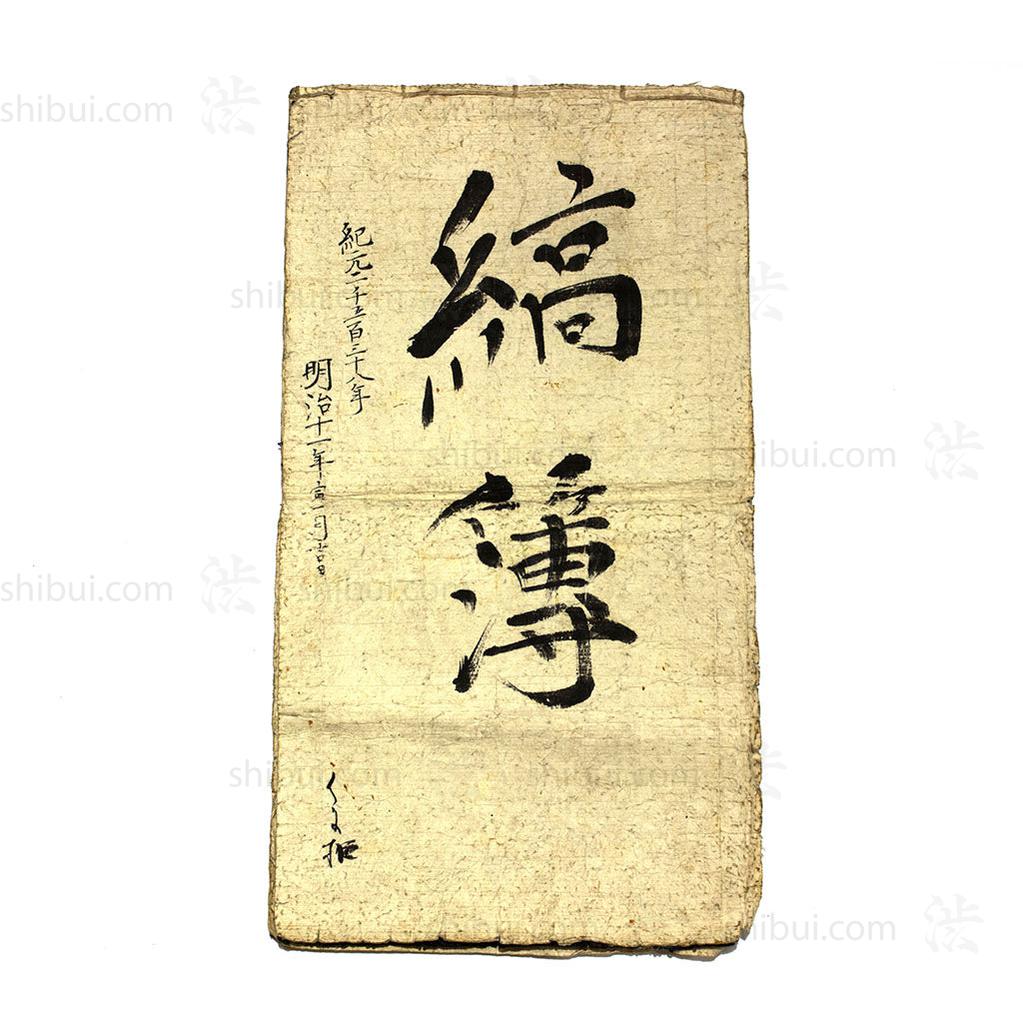 縞
簿
紀元二千五百三十八年
明治十一年寅一月吉日
shibui.com 渋
shibui.com
shibui.com 渋
shibui.com
shibui.com 渋
shibui.com 渋
shibui.com
shibui.com
shibui.com 渋
shibui.com 渋